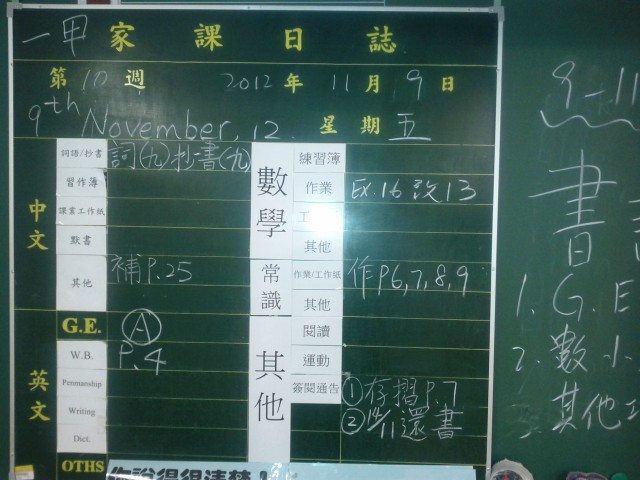 一甲 家課日誌
第10週 2012年11月9日
9th November, 12. 星期五
中文
詞語/抄書 詞(九)抄書(九)
習作簿
課業工作紙
默書
其他 補P.25
英文
G.E. Ⓐ
W.B. P.4
Penmanship
Writing
Dict.
OTHS
數學
練習簿
作業 Ex.16 改13
工
其他
常識
作業/工作紙 作P6,7,8,9
其他
其他
閱讀
運動
簽閱通告 ①存摺P.7
②14/11還書
你說得很清楚
9-11
書
1. G.E
2. 數小
3. 其他工